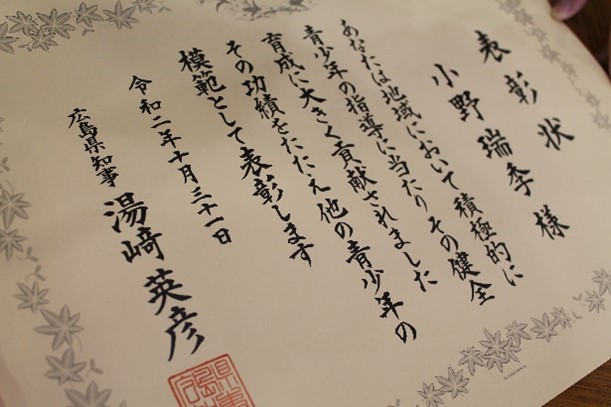 表彰状
小野瑞季様
あなたは地域において積極的に
青少年の指導に当たりその健全
育成に大きく貢献されました
その功績をたたえ他の青少年の
模範として表彰します
令和二年十月三十一日
広島県知事
湯﨑英彦